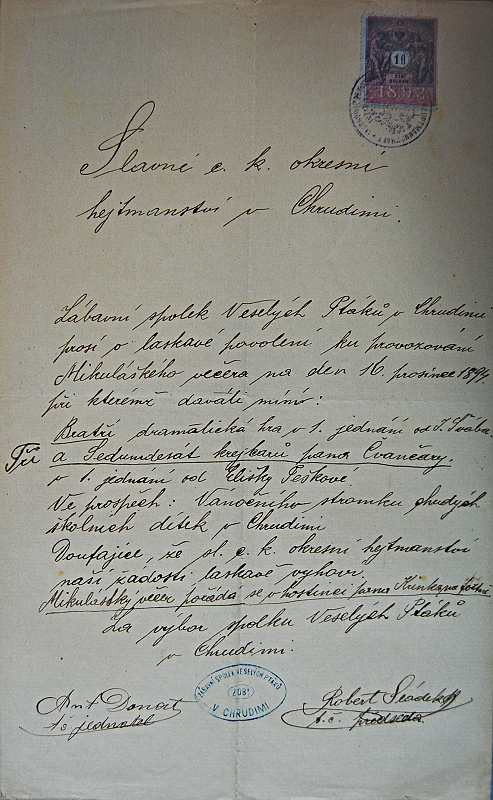 10
1893
Slavné c. k. okresní
hejtmanství v Chrudimi.
Zábavní spolek Veselých Ptáků v Chrudimi
prosí o laskavé povolení ku provozování
Mikulášského večera na den 16. prosince 1894.
při kterémž dávati míní:
Bratři dramatická hra v 1. jednání od J. Švába
a Sedumdesát krejcarů pana Čvančary.
v 1. jednání od Elišky Peškové
Ve prospěch: Vánočního stromku chudých
školních dítek v Chrudimi
Doufajíce, že sl. c. k. okresní hejtmanství
naší žádosti laskavě vyhoví.
Mikulášský večer pořádá se v hostinci pana
Za výbor spolku Veselých Ptáků
v Chrudimi.
ZÁBAVNÍ SPOLEK VESELÝCH PTÁKŮ
V CHRUDIMI
Ant Donát
t. č. jednatel
Robert
t. č. předseda